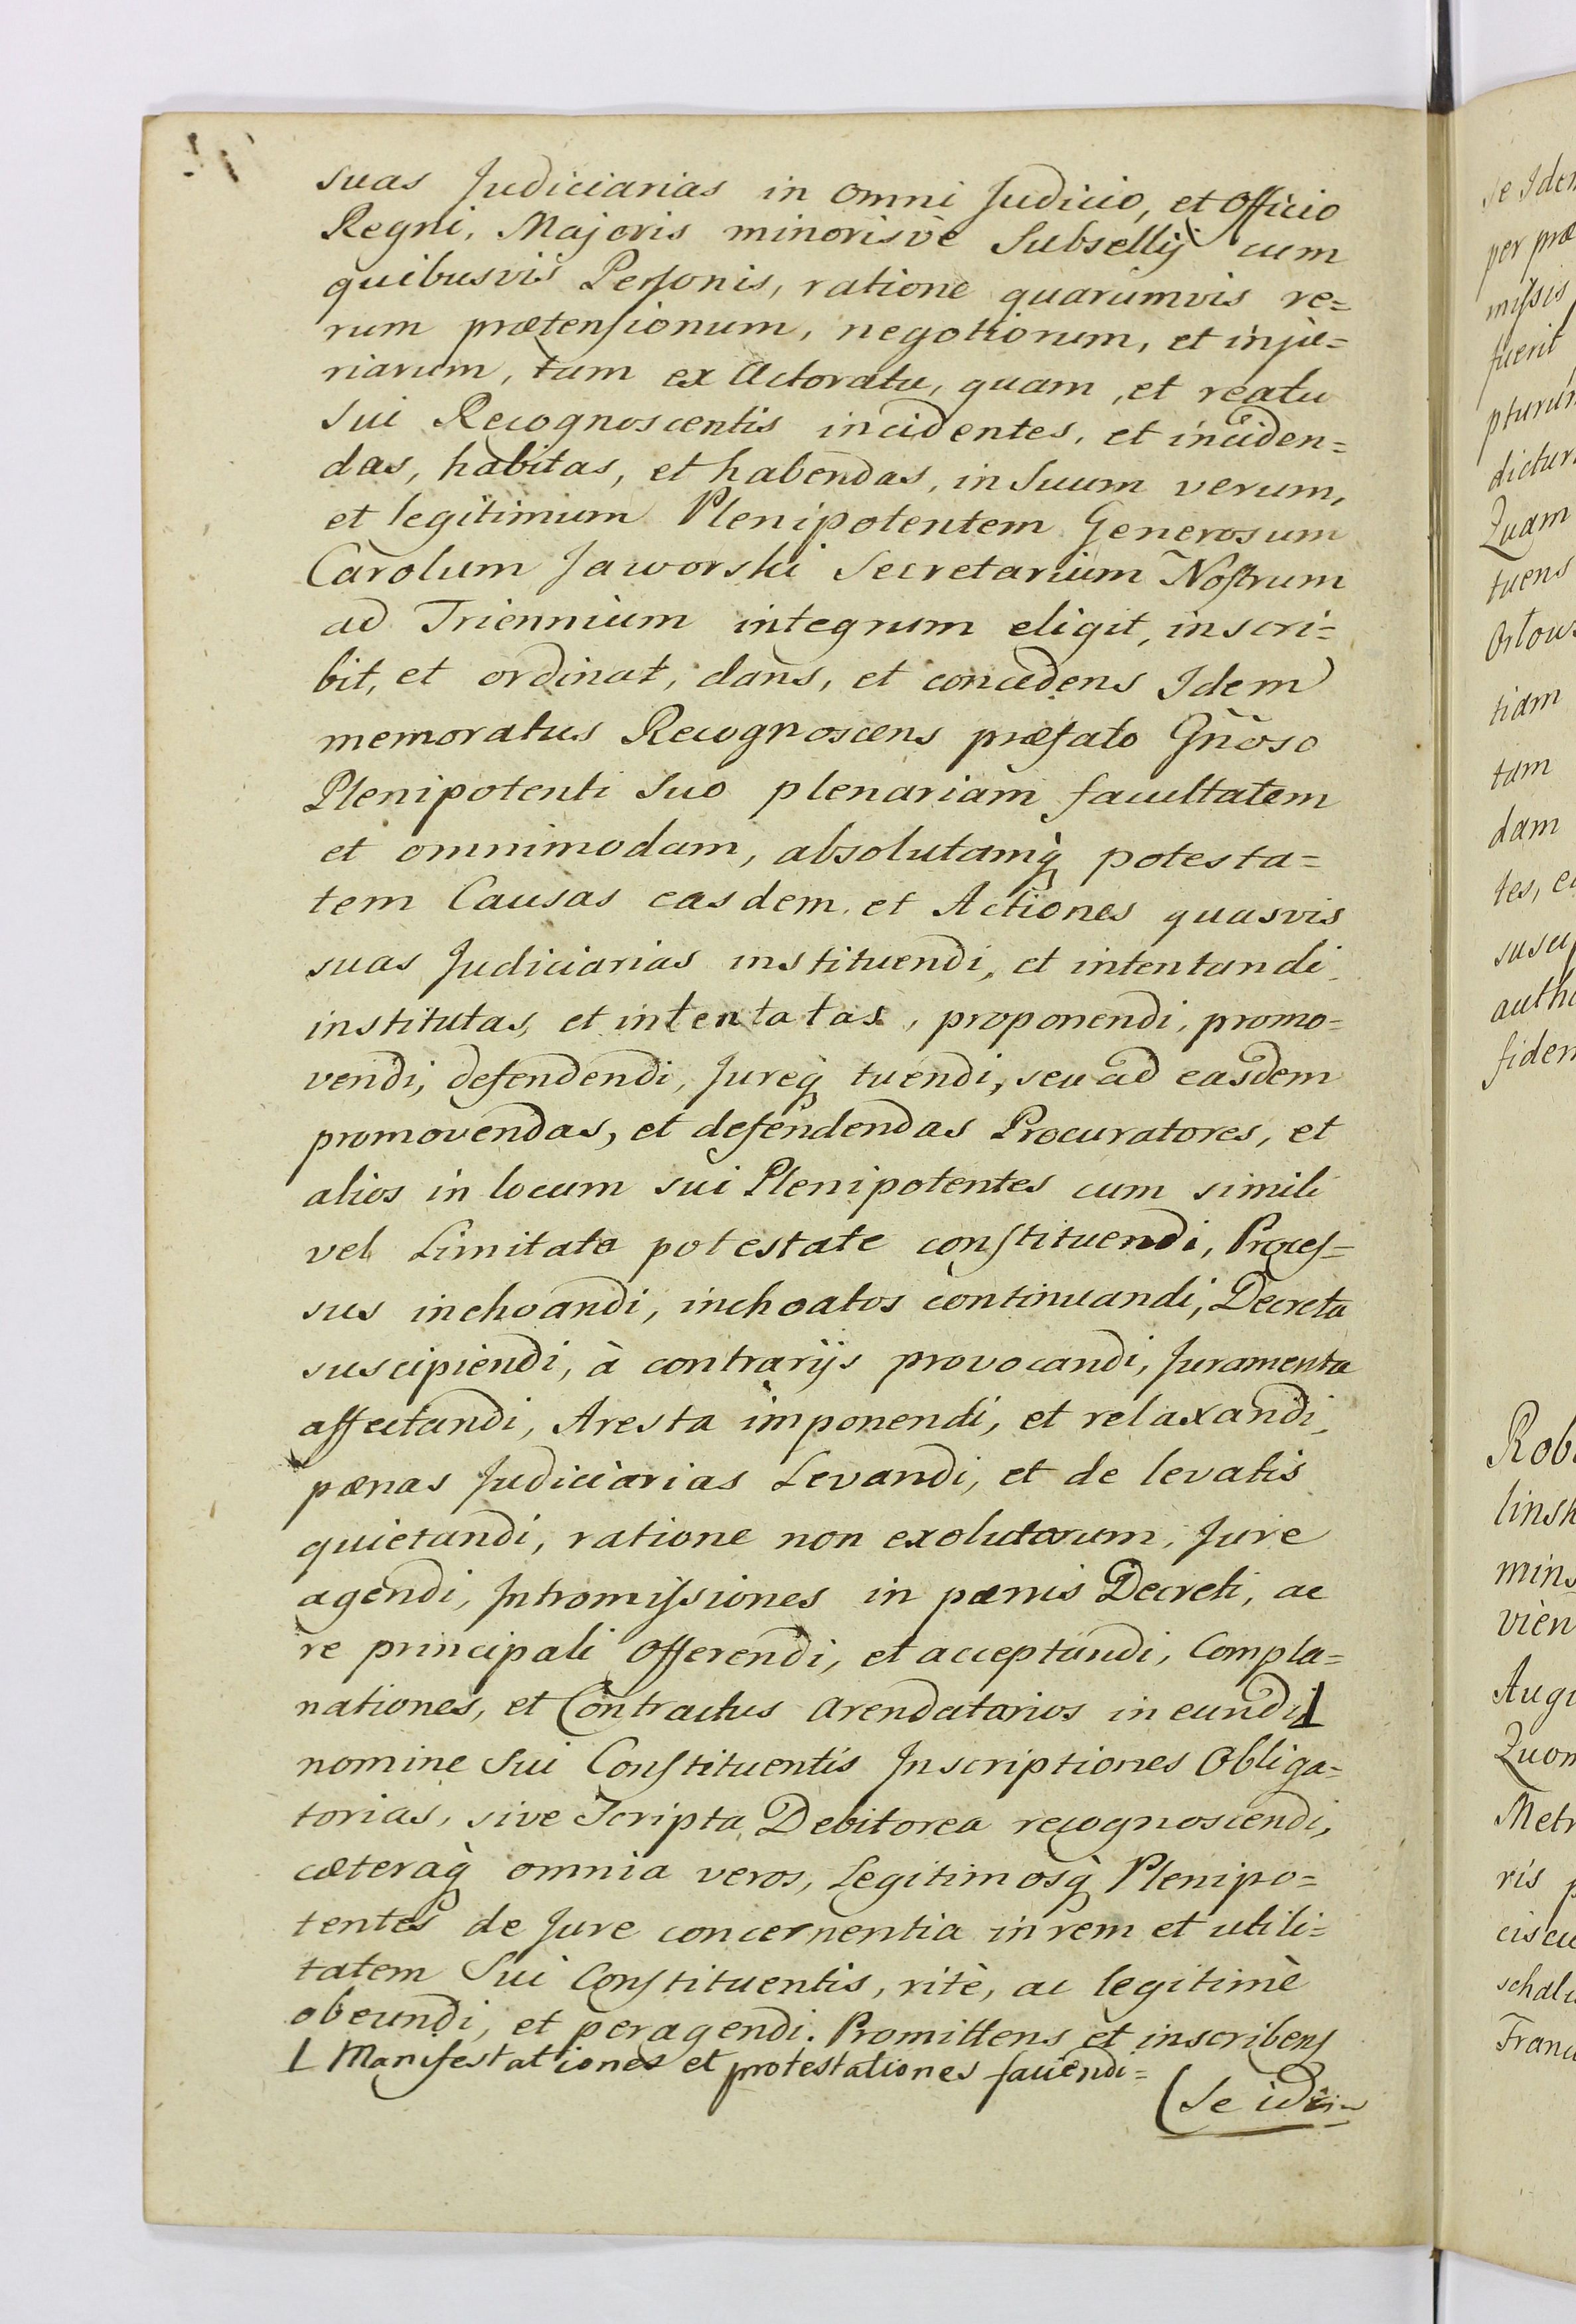 suas Judiciarias in omni Judicio, et Officio
Regni, Majoris minorisvè Subsellÿ cum
quibusvis Personis, ratione quarumvis re=
rum prætensionum, negotiorum, et inju=
riarum, tum ex Actoratu, quam, et reatu
Sui Recognoscentis incidentes, et inciden=
das, habitas, et habendas, in Suum verum,
et legitimum Plenipotentem Generosum
Carolum Jaworski Secretarium Nostrum
ad Triennium integrum eligit, inscri=
bit, et ordinat, dans, et concedens Idem
memoratus Recognoscens præfato Gñoso
Plenipotenti Suo plenariam facultatem
et omnimodam, absolutamq̀ potesta=
tem Causas easdem, et Actiones quasvis
suas Judiciarias instituendi, et intentandi,
institutas, et intentatas, proponendi, promo=
vendi, defendendi, Jureq̀ tuendi, seu ad easdem
promovendas, et defendendas Procuratores, et
alios in locum sui Plenipotentes cum simili
vel Limitata potestate constituendi, Proces=
sus inchoandi, inchoatos continuandi, Decreta
suscipiendi, à contrarÿs provocandi, Juramenta
affectandi, Aresta imponendi, et relaxandi,
pænas Judiciarias Levandi, et de levatis
quietandi, ratione non exolutarum, Jure
agendi, Intromissiones in pænis Decreti, ac
re principali Offerendi, et acceptandi, Compla=
nationes, et Contractus Arendatorios ineundi L
nomine Sui Constituentis Inscriptiones Obliga=
torias, sive Scripta Debitorea recognoscendi,
cæteraq̀ omnia veros, Legitimosq̀ Plenipo=
tentes de Jure concernentia in rem et utili=
tatem Sui Constituentis, ritè, ac legitimè
obeundi, et peragendi. Promittens et inscribens
L Manifestationes et protestationes faciendi=
(Se idem
Se Idem
per præ
missis
fuerit
pturum
dictur
Quam
tuens
Ostow
tiam
tam
dam
tes, e
suscip
autho
fidem
Rob
linsk
mins
vien
Augu
Quon
Metr
ris p
cis cu
schal
Franc